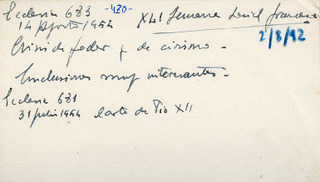 Ecclesia 683 -420- XLI Semaine Social francesa
14 Agosto 1954 2/8/92
Crisis de poder y de civismo.
Conclusiones muy interesantes -
Ecclesia 681
31 julio 1954 Carta de Pio XII